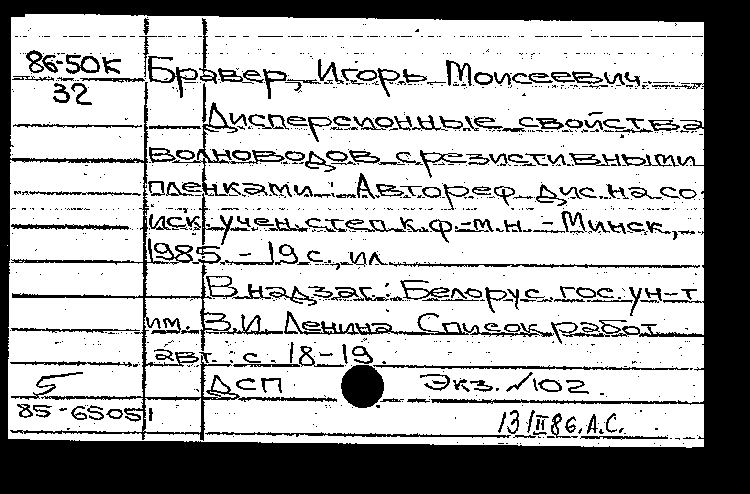 86-50К
32
Бравер, Игорь Моисеевич
Дисперсионные свойства
волноводов с резистивными
пленками : Автореф. дис. на со-
иск. учен. степ. к. ф.-м. н. - Минск,
1985. - 19 с., ил.
В надзаг.: Белорус. гос. ун-т
им. В.И. Ленина. Список работ
авт.: с. 18-19.
5
ДСП Экз. №102.
85-65051
13/II 86. А.С.